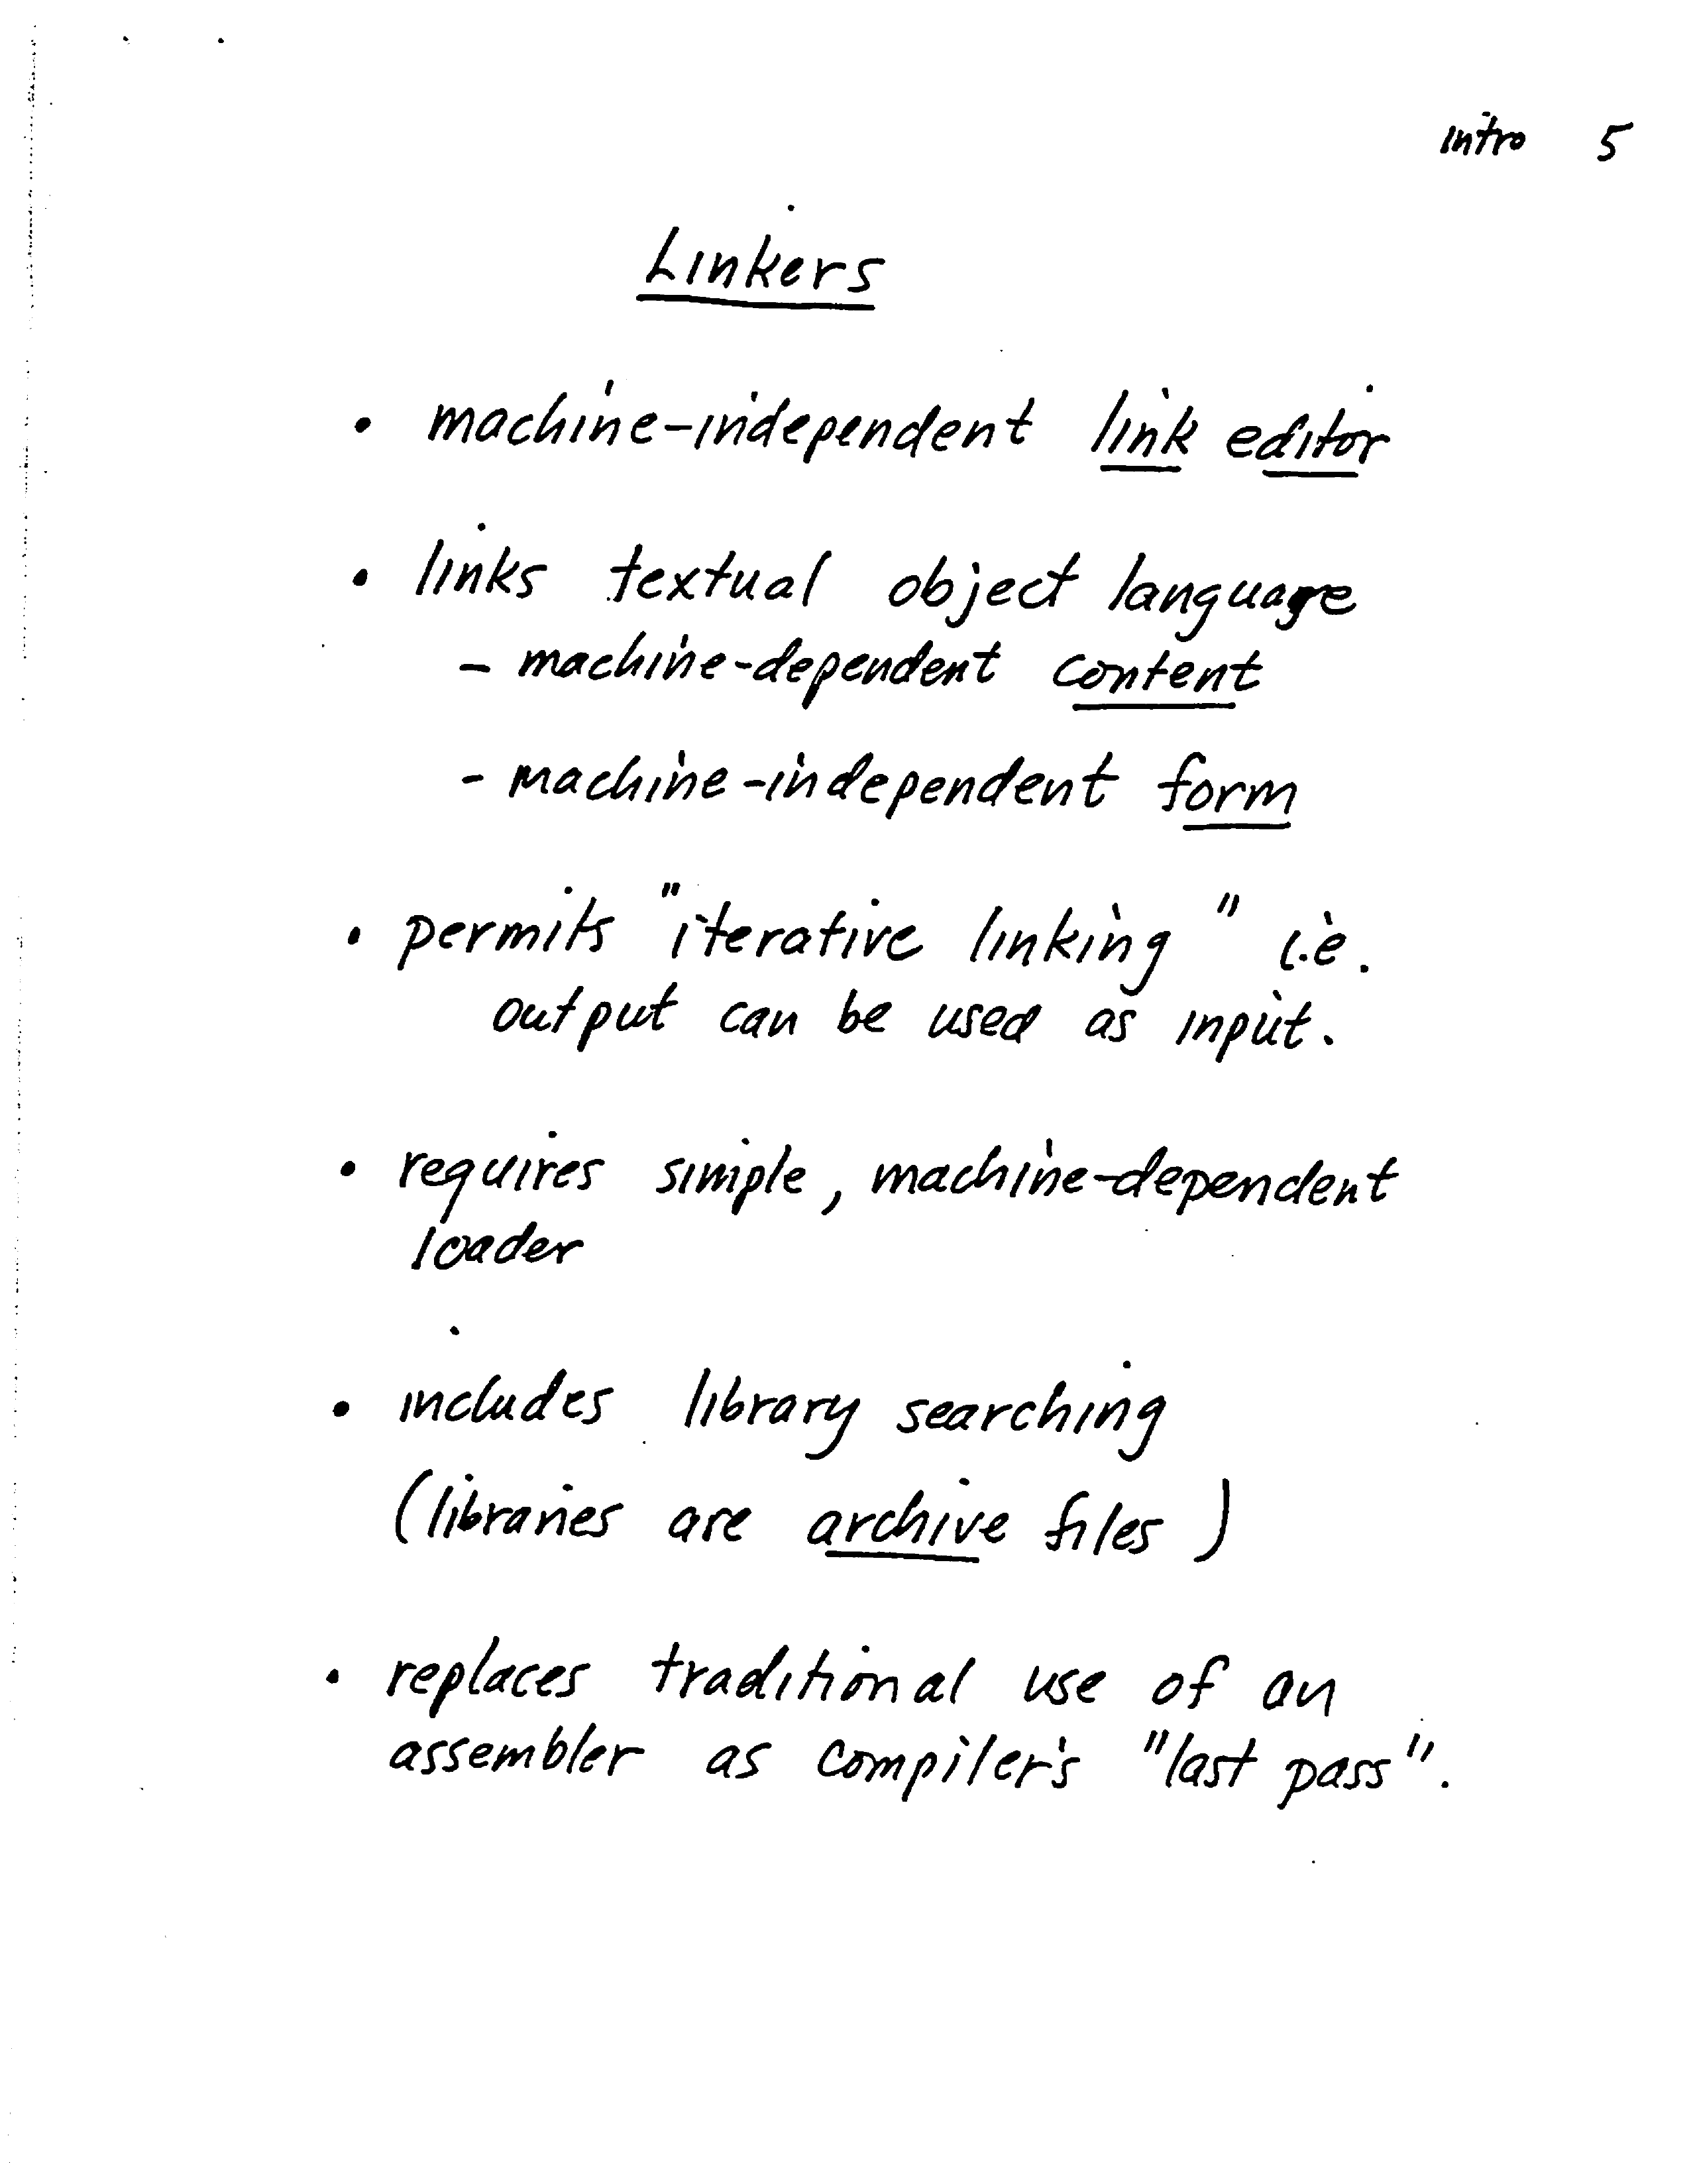 Intro 5
Linkers
• machine-independent link editor
• links textual object language
- machine-dependent content
- machine-independent form
• permits "iterative linking" i.e.
output can be used as input.
• requires simple, machine-dependent
loader
• includes library searching
(libraries are archive files)
• replaces traditional use of an
assembler as compiler's "last pass".